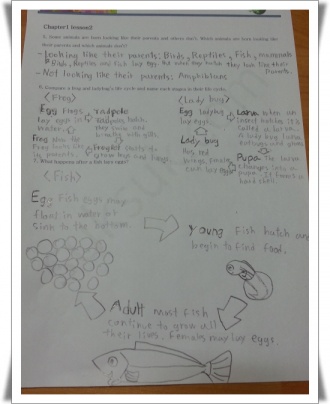 Chapter1 lesson2
5. Some animals are born looking like their parents and others don't. Which animals are born looking like
their parents and which animals don't?
- Looking like their parents: Birds, Reptiles, Fish, mammals
Birds, Reptiles and fish lay eggs. But when they hatch they look like their
parents.
- Not looking like their parents: Amphibians
6. Compare a frog and ladybug's life cycle and name each stages in their life cycle.
<Frog>
<Lady bug>
Egg Frogs
lay eggs in
water.
tadpole
Tadpoles hatch.
they swim and
breath with gills.
Froglet
grow legs and lungs.
Frog
Egg ladybug
lay eggs.
Larva when an
insect hatches it is
called a larva.
Pupa The larva
changes into a
pupa. It forms a
hard shell
Lady bug
7. What happens after a fish hatches?
<Fish>
Egg Fish eggs may
float in water or
sink to the bottom.
Young Fish hatch and
begin to find food.
Adult most fish
continue to grow all
their lives. Females may lay eggs.